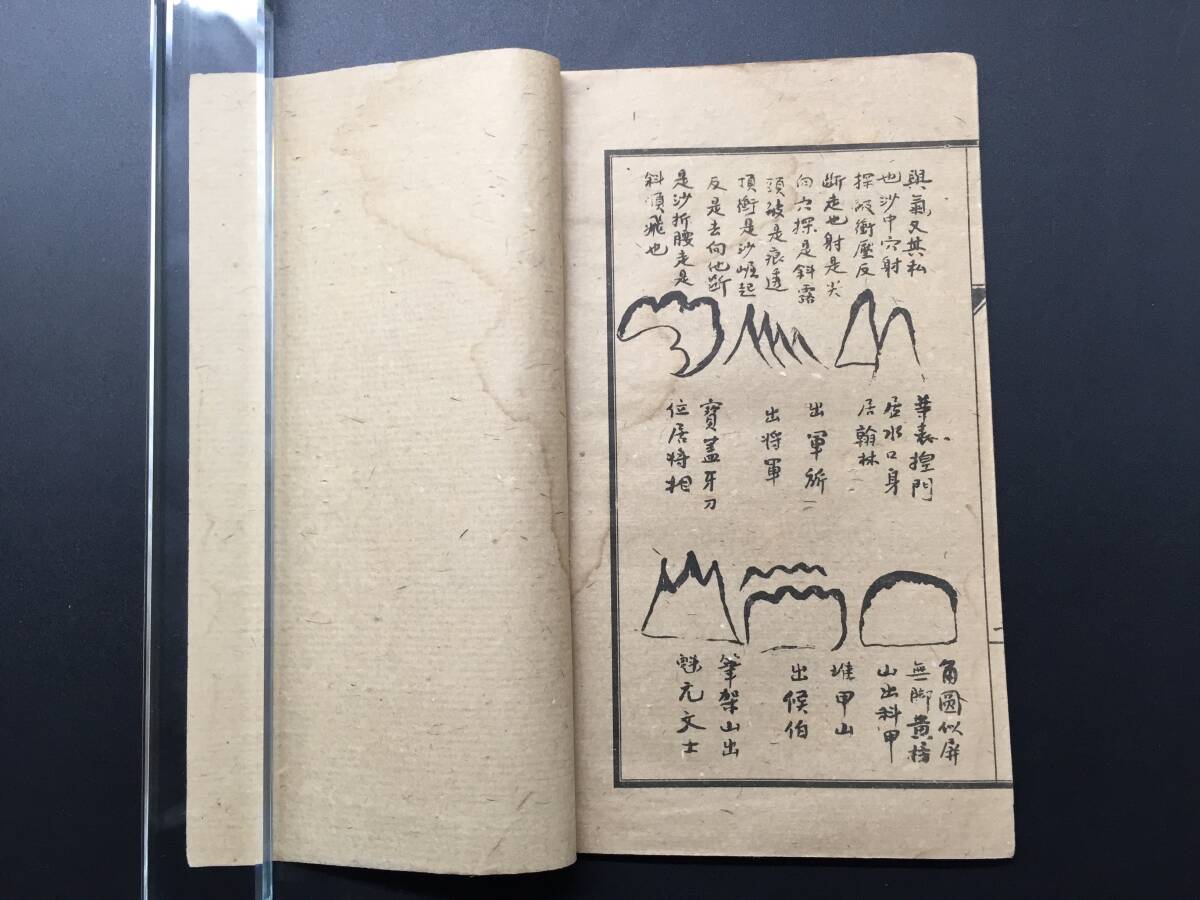 與氣又其私
也沙中穴射
探破衝壓反
斷走也射是尖
向穴探是斜露
頭破是痕透
頂衝是沙崛起
反是去向他斷
是沙折腰走是
斜順飛也
華表捍門
居水口身
居翰林
出軍所
出将軍
寶蓋牙刀
位居将相
角圓似屏
無脚黄榜
山出科甲
堆甲山
出候伯
筆架山出
魁元文士